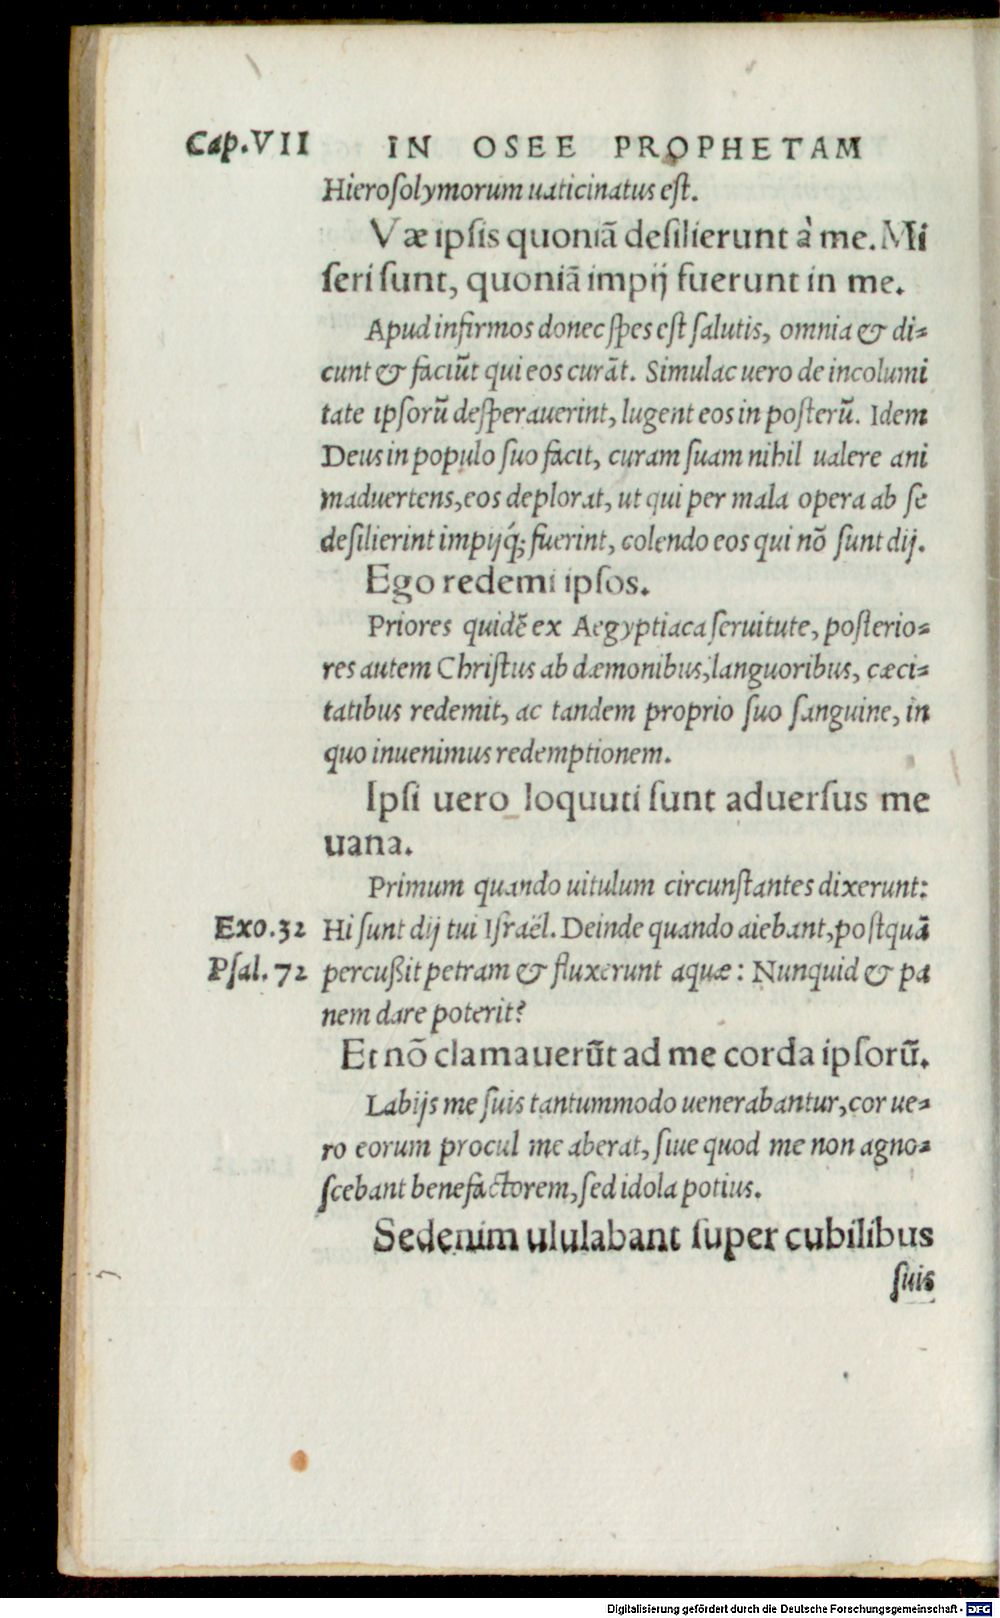 Cap.VII IN OSEE PROPHETAM
Hieroſolymorum uaticinatus eſt.
Væ ipſis quoniã deſilierunt à me. Mi
ſeri ſunt, quoniã impij fuerunt in me.
Apud infirmos donec ſpes eſt ſalutis, omnia & di-
cunt & faciũt qui eos curãt. Simulac uero de incolumi
tate ipſorũ deſperauerint, lugent eos in poſterũ. Idem
Deus in populo ſuo facit, curam ſuam nihil ualere ani
maduertens, eos deplorat, ut qui per mala opera ab ſe
deſilierint impijq́; fuerint, colendo eos qui nõ ſunt dij.
Ego redemi ipſos.
Priores quidẽ ex Aegyptiaca ſeruitute, poſterio-
res autem Chriſtus ab dæmonibus, languoribus, cæci-
tatibus redemit, ac tandem proprio ſuo ſanguine, in
quo inuenimus redemptionem.
Ipſi uero loquuti ſunt aduerſus me
uana.
Primum quando uitulum circunſtantes dixerunt:
Exo.32 Hi ſunt dij tui Iſraël. Deinde quando aiebant, poſtquã
Pſal.72 percußit petram & fluxerunt aquæ: Nunquid & pa
nem dare poterit?
Et nõ clamauerũt ad me corda ipſorũ.
Labijs me ſuis tantummodo uenerabantur, cor ue-
ro eorum procul me aberat, ſiue quod me non agno-
ſcebant benefactorem, ſed idola potius.
Sedenim ululabant ſuper cubilibus
ſuis
Digitalisierung gefördert durch die Deutsche Forschungsgemeinschaft - DFG